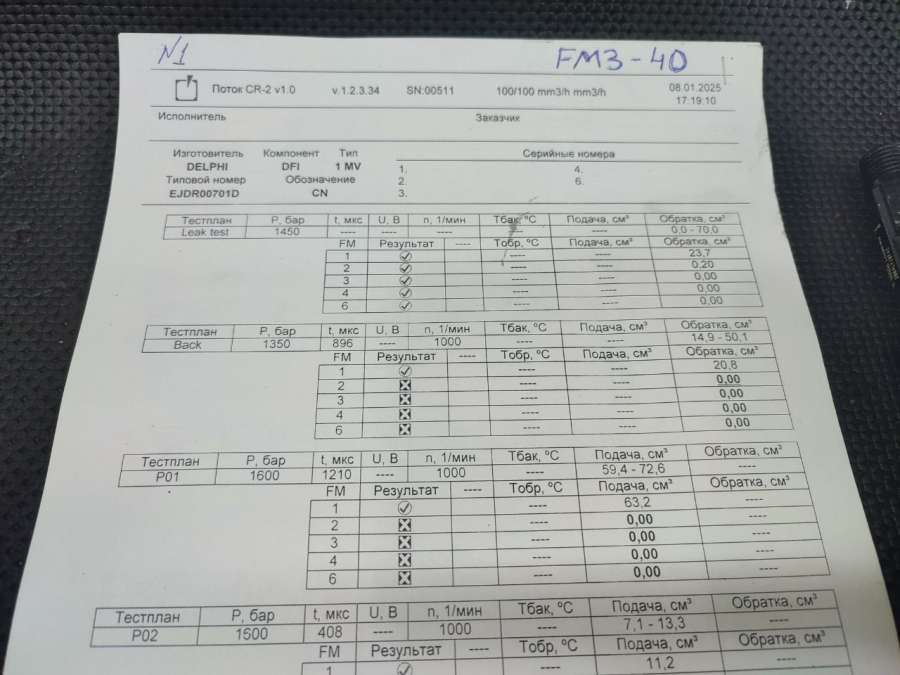 N1 FM3-40
Поток CR-2 v1.0 v.1.2.3.34 SN:00511 100/100 mm3/h mm3/h 08.01.2025
17:19:10
Исполнитель Заказчик
Изготовитель Компонент Тип Серийные номера
DELPHI DFI 1 MV 1. 4.
Типовой номер Обозначение 2. 6.
EJDR00701D CN 3.
Тестплан P, бар t, мкс U, В n, 1/мин Тбак, ºC Подача, см³ Обратка, см³
Leak test 1450 ---- ---- ---- ---- ---- 0,0 - 70,0
FM Результат ---- Тобр, ºC Подача, см³ Обратка, см³
1 ---- ---- 23,7
2 ---- ---- 0,20
3 ---- ---- 0,00
4 ---- ---- 0,00
6 ---- ---- 0,00
Тестплан P, бар t, мкс U, В n, 1/мин Тбак, ºC Подача, см³ Обратка, см³
Back 1350 896 ---- 1000 ---- ---- 14,9 - 50,1
FM Результат ---- Тобр, ºC Подача, см³ Обратка, см³
1 ---- ---- 20,8
2 ---- ---- 0,00
3 ---- ---- 0,00
4 ---- ---- 0,00
6 ---- ---- 0,00
Тестплан P, бар t, мкс U, В n, 1/мин Тбак, ºC Подача, см³ Обратка, см³
P01 1600 1210 ---- 1000 ---- 59,4 - 72,6 ----
FM Результат ---- Тобр, ºC Подача, см³ Обратка, см³
1 ---- 63,2 ----
2 ---- 0,00 ----
3 ---- 0,00 ----
4 ---- 0,00 ----
6 ---- 0,00 ----
Тестплан P, бар t, мкс U, В n, 1/мин Тбак, ºC Подача, см³ Обратка, см³
P02 1600 408 ---- 1000 ---- 7,1 - 13,3 ----
FM Результат ---- Тобр, ºC Подача, см³ Обратка, см³
1 ---- 11,2 ----